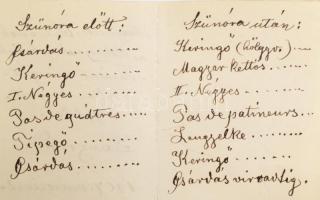 Szünóra előtt:
Csárdás..........
Keringő..........
I. Négyes........
Pas de quatres...
Tipegő...........
Csárdás..........
Szünóra után:
Keringő (hölgyv.)....
Magyar kettős....
II. Négyes.......
Pas de patineurs...
Lengyelke........
Keringő..........
Csárdás virradtig.